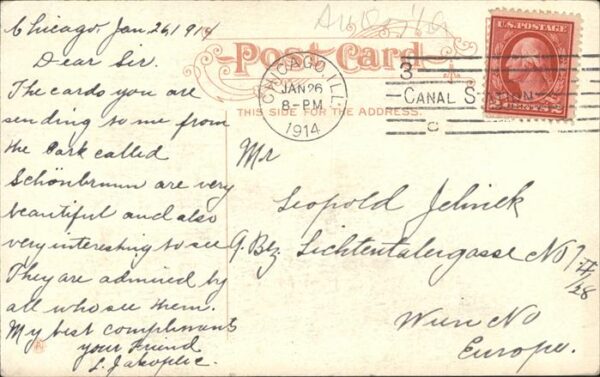 Chicago, Jan 26, 1914
Dear Sir.
The cards you are
sending to me from
the Park called
Schönbrunn are very
beautiful and also
very interesting to see
They are admired by
all who see them.
My best compliments
your Friend
Post Card
THIS SIDE FOR THE ADDRESS.
CHICAGO, ILL.
JAN 26
8-PM
1914
3
CANAL STATION
C
U.S. POSTAGE
2 CENTS 2
Mr
Leopold Jelinek
9. Bez. Lichtentalergasse No
Wien
Europa.